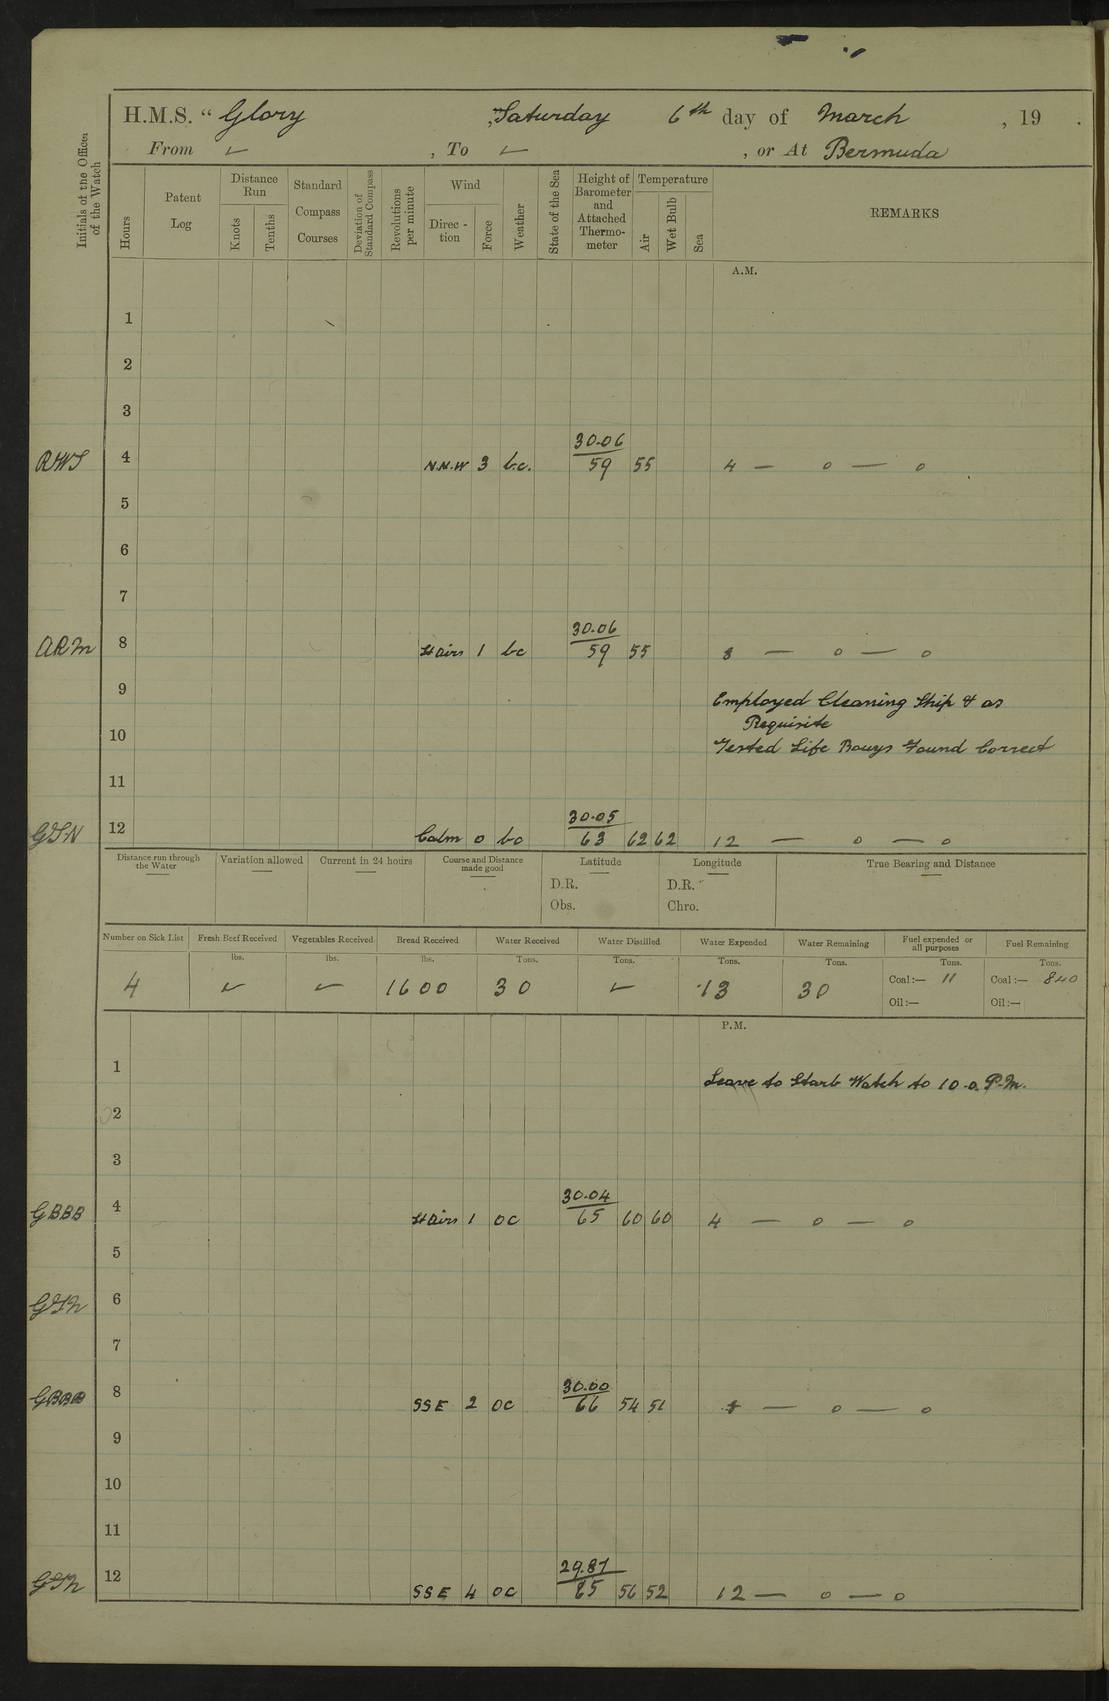 H.M.S. “ Glory „ Saturday 6th day of March , 19 .
From ✓ , To ✓ , or At Bermuda
Initials of the Officer of the Watch
Hours
Patent Log
Distance Run
Knots
Tenths
Standard Compass Courses
Deviation of Standard Compass
Revolutions per minute
Wind
Direc-tion
Force
Weather
State of the Sea
Height of Barometer and Attached Thermo-meter
Temperature
Air
Wet Bulb
Sea
REMARKS
A.M.
1
2
3
30.06
4 N.N.W 3 bc. 59 55 4 — o — o
5
6
7
30.06
ARM 8 Lt Airs 1 bc 59 55 8 — o — o
9
Employed Cleaning Ship & as
Requisite
10
Tested Life Bouys Found Correct
11
30.05
12 Calm 0 bc 63 62 62 12 — o — o
Distance run through the Water
Variation allowed
Current in 24 hours
Course and Distance made good
Latitude
D.R.
Obs.
Longitude
D.R.
Chro.
True Bearing and Distance
Number on Sick List
Fresh Beef Received
Vegetables Received
Bread Received
Water Received
Water Distilled
Water Expended
Water Remaining
Fuel expended or all purposes
Fuel Remaining
lbs. lbs. lbs. Tons. Tons. Tons. Tons. Tons. Tons.
4 ✓ ✓ 1600 30 ✓ 13 30 Coal:— 11 Coal:— 840
Oil:— Oil:—
P.M.
1
Leave to Starb Watch to 10.0. P.M.
2
3
30.04
GBBB 4 Lt Airs 1 oc 65 60 60 4 — o — o
5
6
7
30.00
GBBB 8 SSE 2 oc 66 54 51 — o — o
9
10
11
29.87
12 SSE 4 oc 65 56 52 12 — o — o